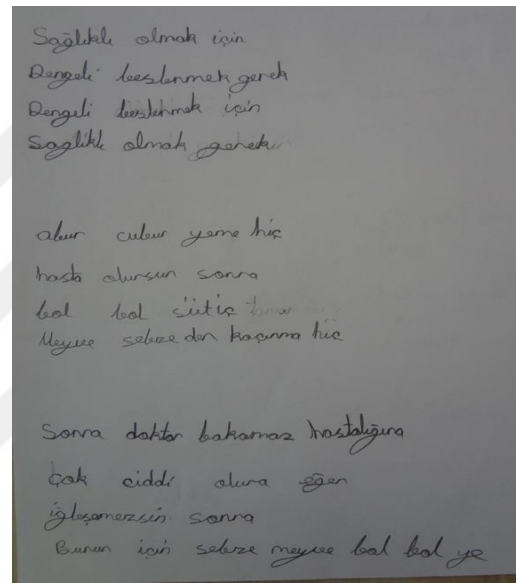 Sağlıklı olmak için
Dengeli beslenmek gerek
Dengeli beslenmek için
Saglıklı olmak gerek
abur cubur yeme hiç
hasta olursun sonra
bol bol süt iç
Meyve sebzeden kaçınma hiç
Sonra doktor bakamaz hastalığına
çok ciddi olursa eğer
iğleşemezsin sonra
Bunun için sebze meyve bol bol ye